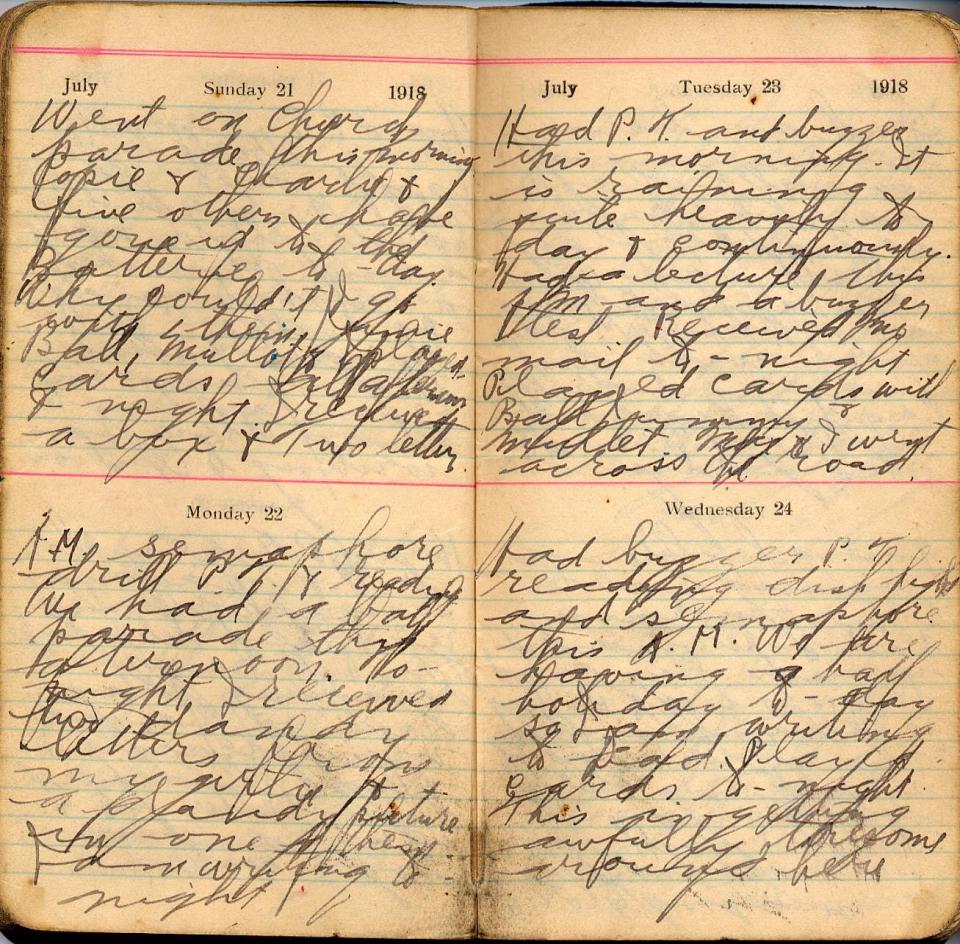 July Sunday 21 1918
Went on Church
parade this morning
Topie & Charlie &
five others have
gone up to the
Batterie to-day.
Why couldn't I go
with them. Topie
Ball, Mullett & I played
cards afternoon
& night. I received
a box & two letters.
Monday 22
A.M. semaphore
drill P.T. & reading
We had a bath
parade this
afternoon. To-
night I received
two dandy
letters from
my girlie &
a dandy picture
in one of them
I am writing to-
night
July Tuesday 23 1918
Had P.T. and buzzer
this morning. It
is raining
quite heavily to
day & continuously.
Had a lecture this
P.M. and a buzzer
test. Received no
mail to-night
Played cards with
Ball &
Mullet & I went
across the road.
Wednesday 24
Had buzzer P.T.
reading disc
and semaphore
this A.M. We are
having a half
holiday to-day
so I am writing
to Dad. Played
cards to-night.
This is getting
awfully lonesome
around here